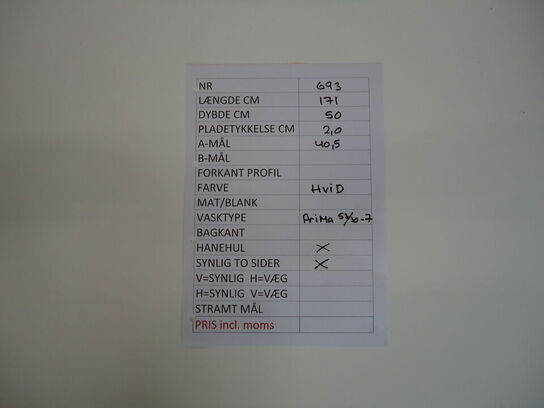 NR 693
LÆNGDE CM 171
DYBDE CM 50
PLADETYKKELSE CM 2,0
A-MÅL 40,5
B-MÅL
FORKANT PROFIL
FARVE HVID
MAT/BLANK
VASKTYPE PriMa
BAGKANT
HANEHUL X
SYNLIG TO SIDER X
V=SYNLIG H=VÆG
H=SYNLIG V=VÆG
STRAMT MÅL
PRIS incl. moms